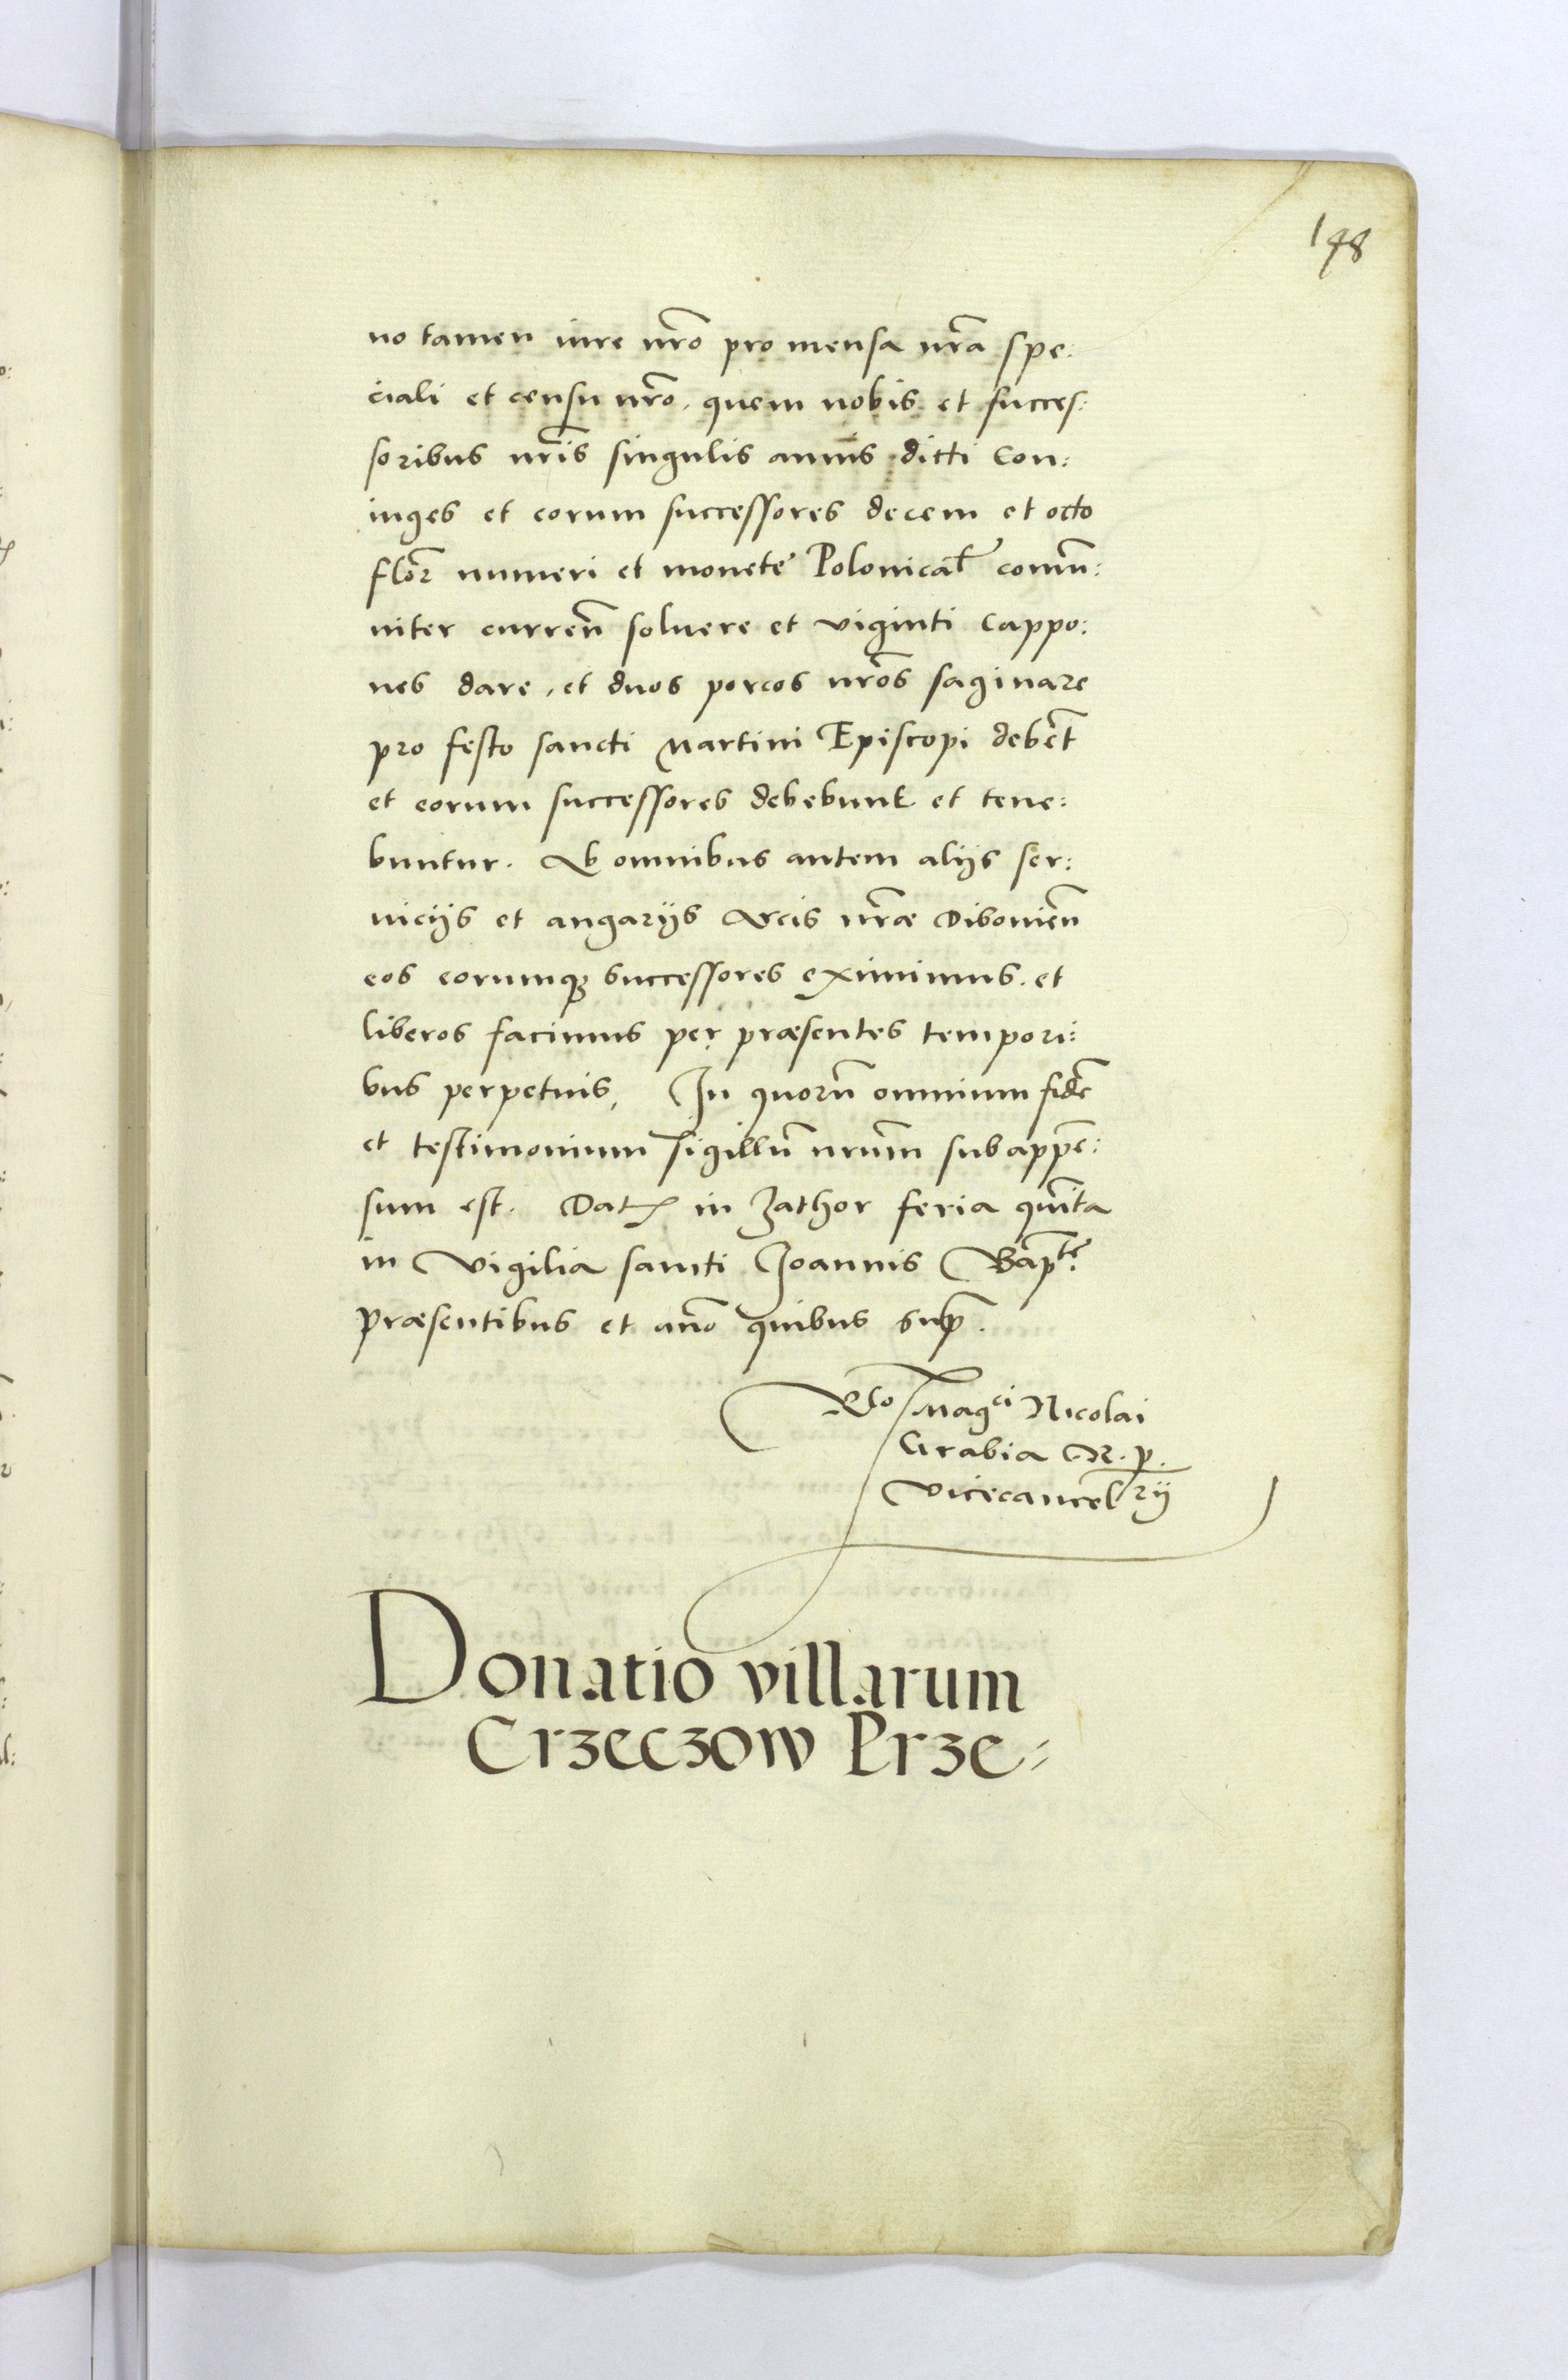 198
no tamen iure nr̃o pro mensa nr̃a spe:
ciali et censu nr̃o, quem nobis et succes:
soribus nr̃is singulis annis dicti Con:
iuges et eorum successores decem et octo
flor̃ numeri et monetę Polonical̃ comũ:
niter curreñ soluere et viginti Cappo:
nes dare, et duos porcos nr̃os saginare
pro festo sancti Martini Episcopi debẽt
et eorum successores debebunt et tene:
buntur. Ab omnibus autem alijs ser:
uicijs et angarijs Arcis nr̃æ Diboviẽn
eos eorumqȝ successores eximimus. et
liberos facimus per præsentes tempori:
bus perpetuis, In quorũ omnium fidẽ
et testimonium sigillũ nrũm subappẽ:
sum est. Dat in Zathor feria quĩta
in Vigilia sancti Joannis Bapt̃ę
præsentibus et año quibus sup̃.
Rẽo Magci Nicolai
Grabia R. p.
Vicecancel̃rij
Donatio villarum
Crzeczow Prze=